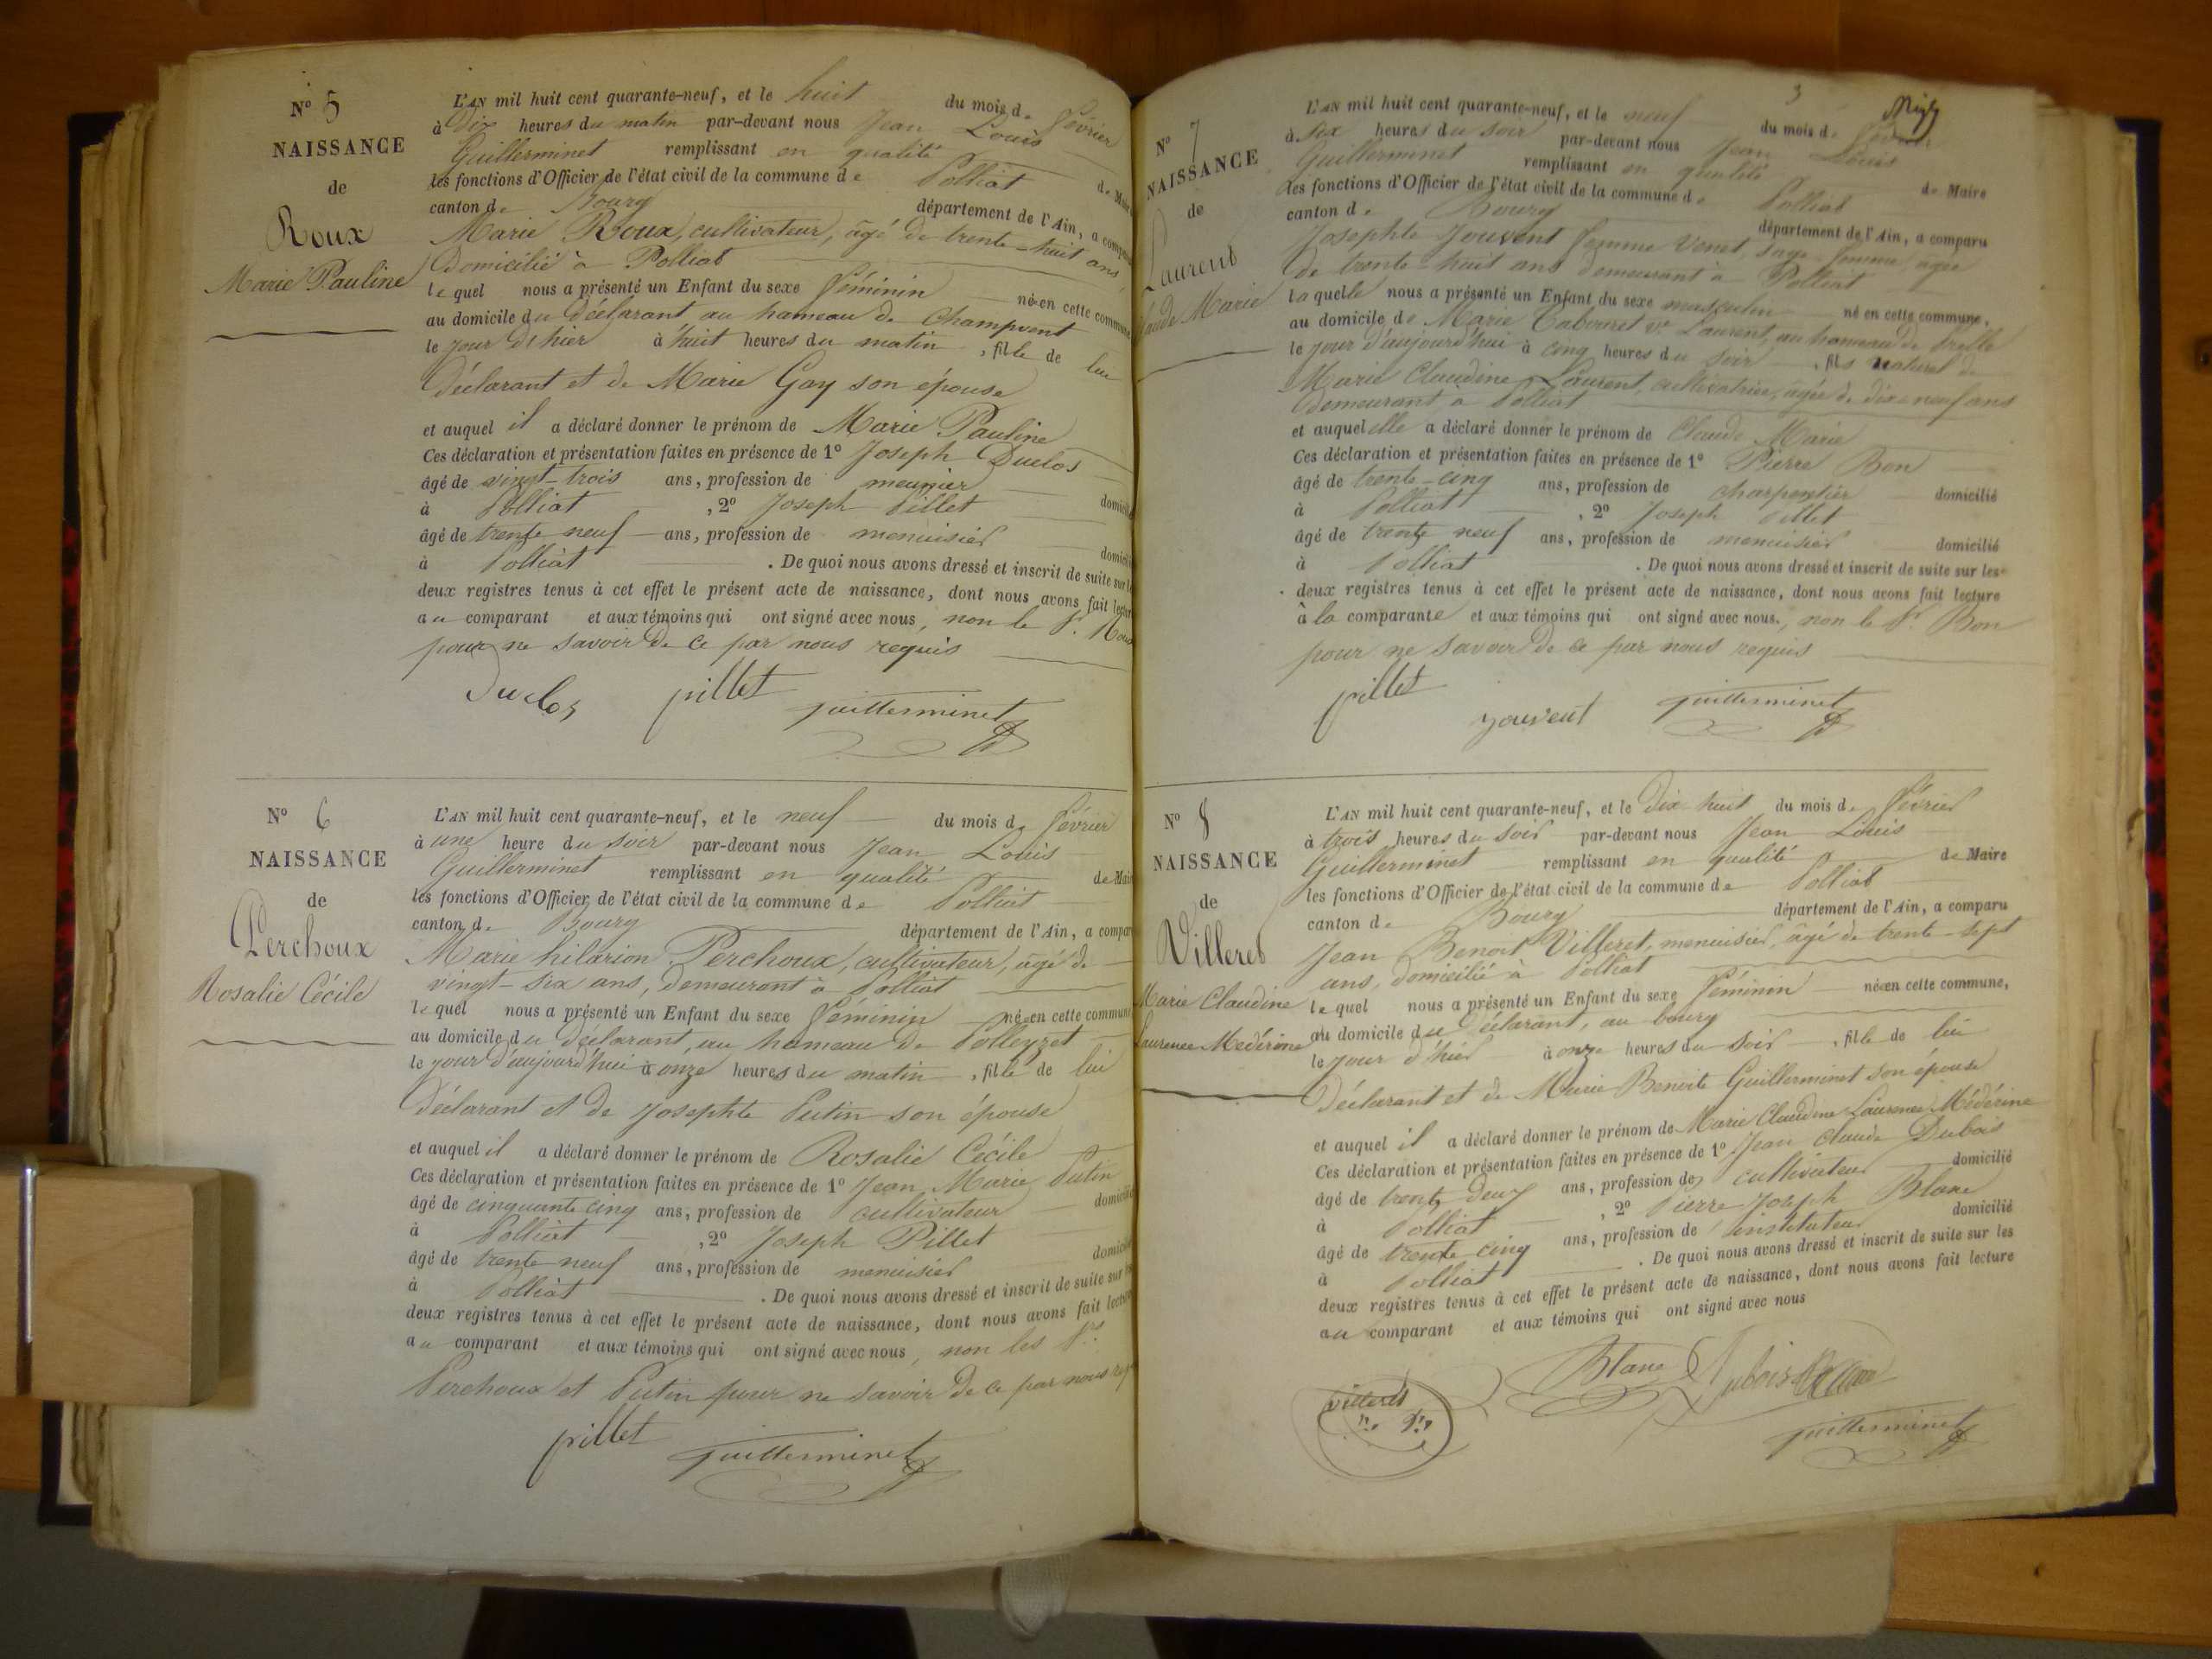 N° 5
NAISSANCE
de
Roux
Marie Pauline
L'AN mil huit cent quarante-neuf, et le huit du mois de février
à dix heures du matin par-devant nous Jean Louis
Guillerminet remplissant en qualité de Maire
les fonctions d'Officier de l'état civil de la commune de Polliat
canton de Bourg département de l'Ain, a comparu
Marie Roux, cultivateur, âgé de trente-huit ans,
domicilié à Polliat
lequel nous a présenté un Enfant du sexe féminin né en cette commune
au domicile du déclarant au hameau de Champvent
le jour d'hier à huit heures du matin, fille de lui
déclarant et de Marie Gay son épouse
et auquel il a déclaré donner le prénom de Marie Pauline
Ces déclaration et présentation faites en présence de 1° Joseph Duclos
âgé de vingt-trois ans, profession de meunier
à Polliat, 2° Joseph Pillet
âgé de trente neuf ans, profession de menuisier
à Polliat. De quoi nous avons dressé et inscrit de suite sur les
deux registres tenus à cet effet le présent acte de naissance, dont nous avons fait lecture
au comparant et aux témoins qui ont signé avec nous, non le Sr. Roux
pour ne savoir de ce par nous requis
Duclos pillet guillerminet
N° 6
NAISSANCE
de
Perchoux
Rosalie Cécile
L'AN mil huit cent quarante-neuf, et le neuf du mois de février
à une heure du soir par-devant nous Jean Louis
Guillerminet remplissant en qualité de Maire
les fonctions d'Officier de l'état civil de la commune de Polliat
canton de Bourg département de l'Ain, a comparu
Marie hilarion Perchoux, cultivateur, âgé de
vingt-six ans, demeurant à Polliat
lequel nous a présenté un Enfant du sexe féminin né en cette commune
au domicile du déclarant, au hameau de Polleyzet
le jour d'aujourd'hui à onze heures du matin, fille de lui
déclarant et de Josephte Putin son épouse
et auquel il a déclaré donner le prénom de Rosalie Cécile
Ces déclaration et présentation faites en présence de 1° Jean Marie Putin
âgé de cinquante cinq ans, profession de cultivateur domicilié
à Polliat, 2° Joseph Pillet
âgé de trente neuf ans, profession de menuisier domicilié
à Polliat. De quoi nous avons dressé et inscrit de suite sur les
deux registres tenus à cet effet le présent acte de naissance, dont nous avons fait lecture
au comparant et aux témoins qui ont signé avec nous, non les Srs.
Perchoux et Putin pour ne savoir de ce par nous req
pillet guillerminet
3
N° 7
NAISSANCE
de
Laurent
Claude Marie
L'AN mil huit cent quarante-neuf, et le neuf du mois de février
à six heures du soir par-devant nous Jean Louis
Guillerminet remplissant en qualité de Maire
les fonctions d'Officier de l'état civil de la commune de Polliat
canton de Bourg département de l'Ain, a comparu
Josephte Jouvent femme Venet, sage-femme, âgée
de trente-huit ans demeurant à Polliat
laquelle nous a présenté un Enfant du sexe masculin né en cette commune,
au domicile de Marie Cabouret ve Laurent, au hameau de
le jour d'aujourd'hui à cinq heures du soir, fils naturel de
Marie Claudine Laurent, cultivatrice, âgée de dix-neuf ans
demeurant à Polliat
et auquel elle a déclaré donner le prénom de Claude Marie
Ces déclaration et présentation faites en présence de 1° Pierre Bon
âgé de trente-cinq ans, profession de charpentier domicilié
à Polliat, 2° Joseph Pillet
âgé de trente neuf ans, profession de menuisier domicilié
à Polliat. De quoi nous avons dressé et inscrit de suite sur les
deux registres tenus à cet effet le présent acte de naissance, dont nous avons fait lecture
à la comparante et aux témoins qui ont signé avec nous, non le Sr. Bon
pour ne savoir de ce par nous requis
pillet jouvent guillerminet
N° 8
NAISSANCE
de
Villeret
Marie Claudine
Laurence Medérine
L'AN mil huit cent quarante-neuf, et le dix-huit du mois de février
à trois heures du soir par-devant nous Jean Louis
Guillerminet remplissant en qualité de Maire
les fonctions d'Officier de l'état civil de la commune de Polliat
canton de Bourg département de l'Ain, a comparu
Jean Benoit Villeret, menuisier, âgé de trente-sept
ans, domicilié à Polliat
lequel nous a présenté un Enfant du sexe féminin né en cette commune,
au domicile du déclarant, au bourg
le jour d'hier à onze heures du soir, fille de lui
déclarant et de Marie Benoite Guillerminet son épouse
et auquel il a déclaré donner le prénom de Marie Claudine Laurence Médérine
Ces déclaration et présentation faites en présence de 1° Jean Claude Dubois
âgé de trente deux ans, profession de cultivateur domicilié
à Polliat, 2° Pierre Joseph Blanc
âgé de trente-cinq ans, profession de instituteur domicilié
à Polliat. De quoi nous avons dressé et inscrit de suite sur les
deux registres tenus à cet effet le présent acte de naissance, dont nous avons fait lecture
au comparant et aux témoins qui ont signé avec nous
villeret Blanc Dubois guillerminet